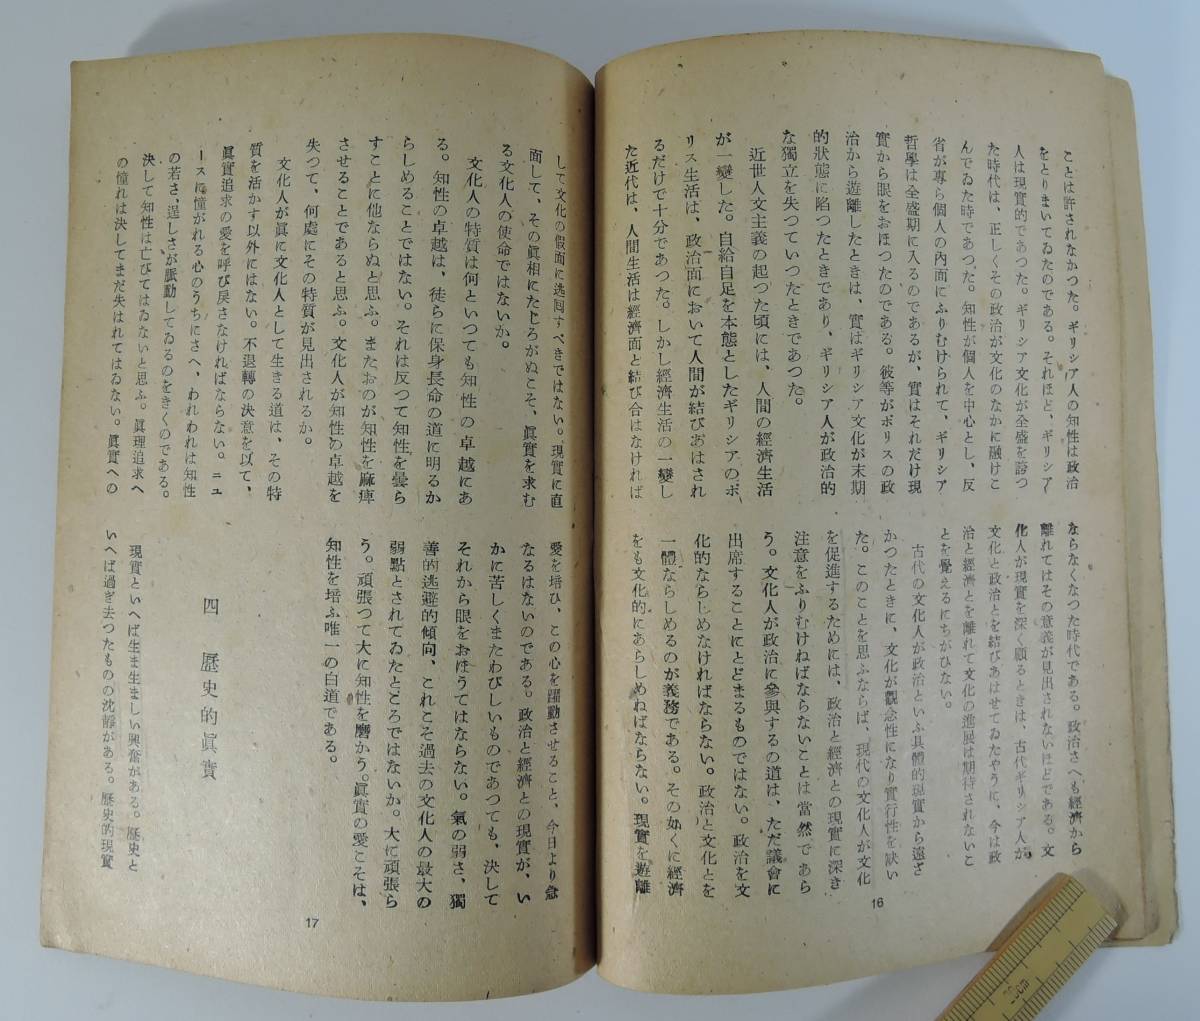 ことは許されなかつた。ギリシア人の知性は政治
をとりまいてゐたのである。それほど、ギリシア
人は現實的であつた。ギリシア文化が全盛を誇つ
た時代は、正しくその政治が文化のなかに融けこ
んでゐた時であつた。知性が個人を中心とし、反
省が專ら個人の內面にふりむけられて、ギリシア
哲學は全盛期に入るのであるが、實はそれだけ現
實から眼をおほつたのである。彼等がポリスの政
治から遊離したときは、實はギリシア文化が末期
的狀態に陷つたときであり、ギリシア人が政治的
な獨立を失つていつたときであつた。
近世人文主義の起つた頃には、人間の經濟生活
が一變した。自給自足を本態としたギリシアのポ
リス生活は、政治面において人間が結びあはされ
るだけで十分であつた。しかし經濟生活の一變し
た近代は、人間生活は經濟面と結び合はなければ
ならなくなつた時代である。政治さへも經濟から
離れてはその意義が見出されないほどである。文
化人が現實を深く顧るときは、古代ギリシア人が
文化と政治とを結びあはせてゐたやうに、今は政
治と經濟とを離れて文化の進展は期待されないこ
とを覺えるにちがひない。
古代の文化人が政治といふ具體的現實から遠ざ
かつたときに、文化が觀念性になり實行性を缺い
た。このことを思ふならば、現代の文化人が文化
を促進するためには、政治と經濟との現實に深き
注意をふりむけねばならないことは當然であら
う。文化人が政治に參與するの道は、ただ議會に
出席することにとどまるものではない。政治を文
化的ならしめなければならない。政治と文化とを
一體ならしめるのが義務である。その如くに經濟
をも文化的にあらしめねばならない。現實を遊離
16
して文化の假面に逃囘すべきではない。現實に直
面して、その眞相にたじろがぬこそ、眞實を求む
る文化人の使命ではないか。
文化人の特質は何といつても知性の卓越にあ
る。知性の卓越は、徒らに保身長命の道に明るか
らしめることではない。それは反つて知性を曇ら
すことに他ならぬと思ふ。またおのが知性を麻痺
させることであると思ふ。文化人が知性の卓越を
失つて、何處にその特質が見出されるか。
文化人が眞に文化人として生きる道は、その特
質を活かす以外にはない。不退轉の決意を以て、
眞實追求の愛を呼び戾さなければならない。ニュ
ースに憧がれる心のうちにさへ、われわれは知性
の若さ、逞しさが脈動してゐるのをきくのである。
決して知性は亡びてはゐないと思ふ。眞理追求へ
の憧れは決してまだ失はれてはゐない。眞實への
愛を培ひ、この心を躍動させること、今日より急
なるはないのである。政治と經濟との現實が、い
かに苦しくまたわびしいものであつても、決して
それから眼をおほうてはならない。氣の弱さ、獨
善的逃避的傾向、これこそ過去の文化人の最大の
弱點とされてゐたところではないか。大に頑張ら
う。頑張つて大に知性を磨かう。眞實の愛こそは、
知性を培ふ唯一の白道である。
四 歷史的眞實
現實といへば生ま生ましい興奮がある。歷史と
いへば過ぎ去つたものの沈靜がある。歷史的現實
17